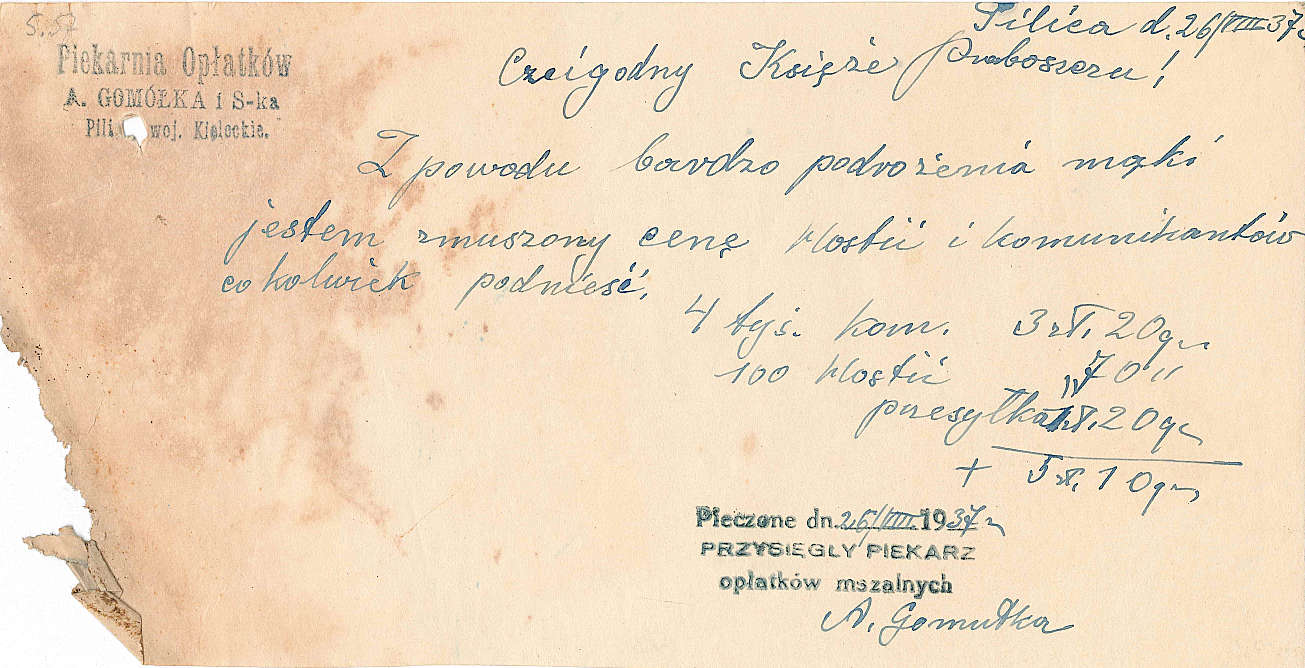 5.57
Pilica d. 26/VIII 37 r
Piekarnia Opłatków
A. GOMÓŁKA i S-ka
Pili woj. Kieleckie.
Czcigodny Księże Proboszczu!
Z powodu bardzo podrożenia mąki
jestem zmuszony cenę Hostii i komunikantów
cokolwiek podnieść.
4 tyś. kom. 3 zł. 20 gr
100 Hostii „ 70 "
przesyłka 1 zł. 20 gr
+ 5 zł. 10 gr
Pieczone dn. 26/VIII. 1937 r
PRZYSIĘGŁY PIEKARZ
opłatków mszalnych
A. Gomułka